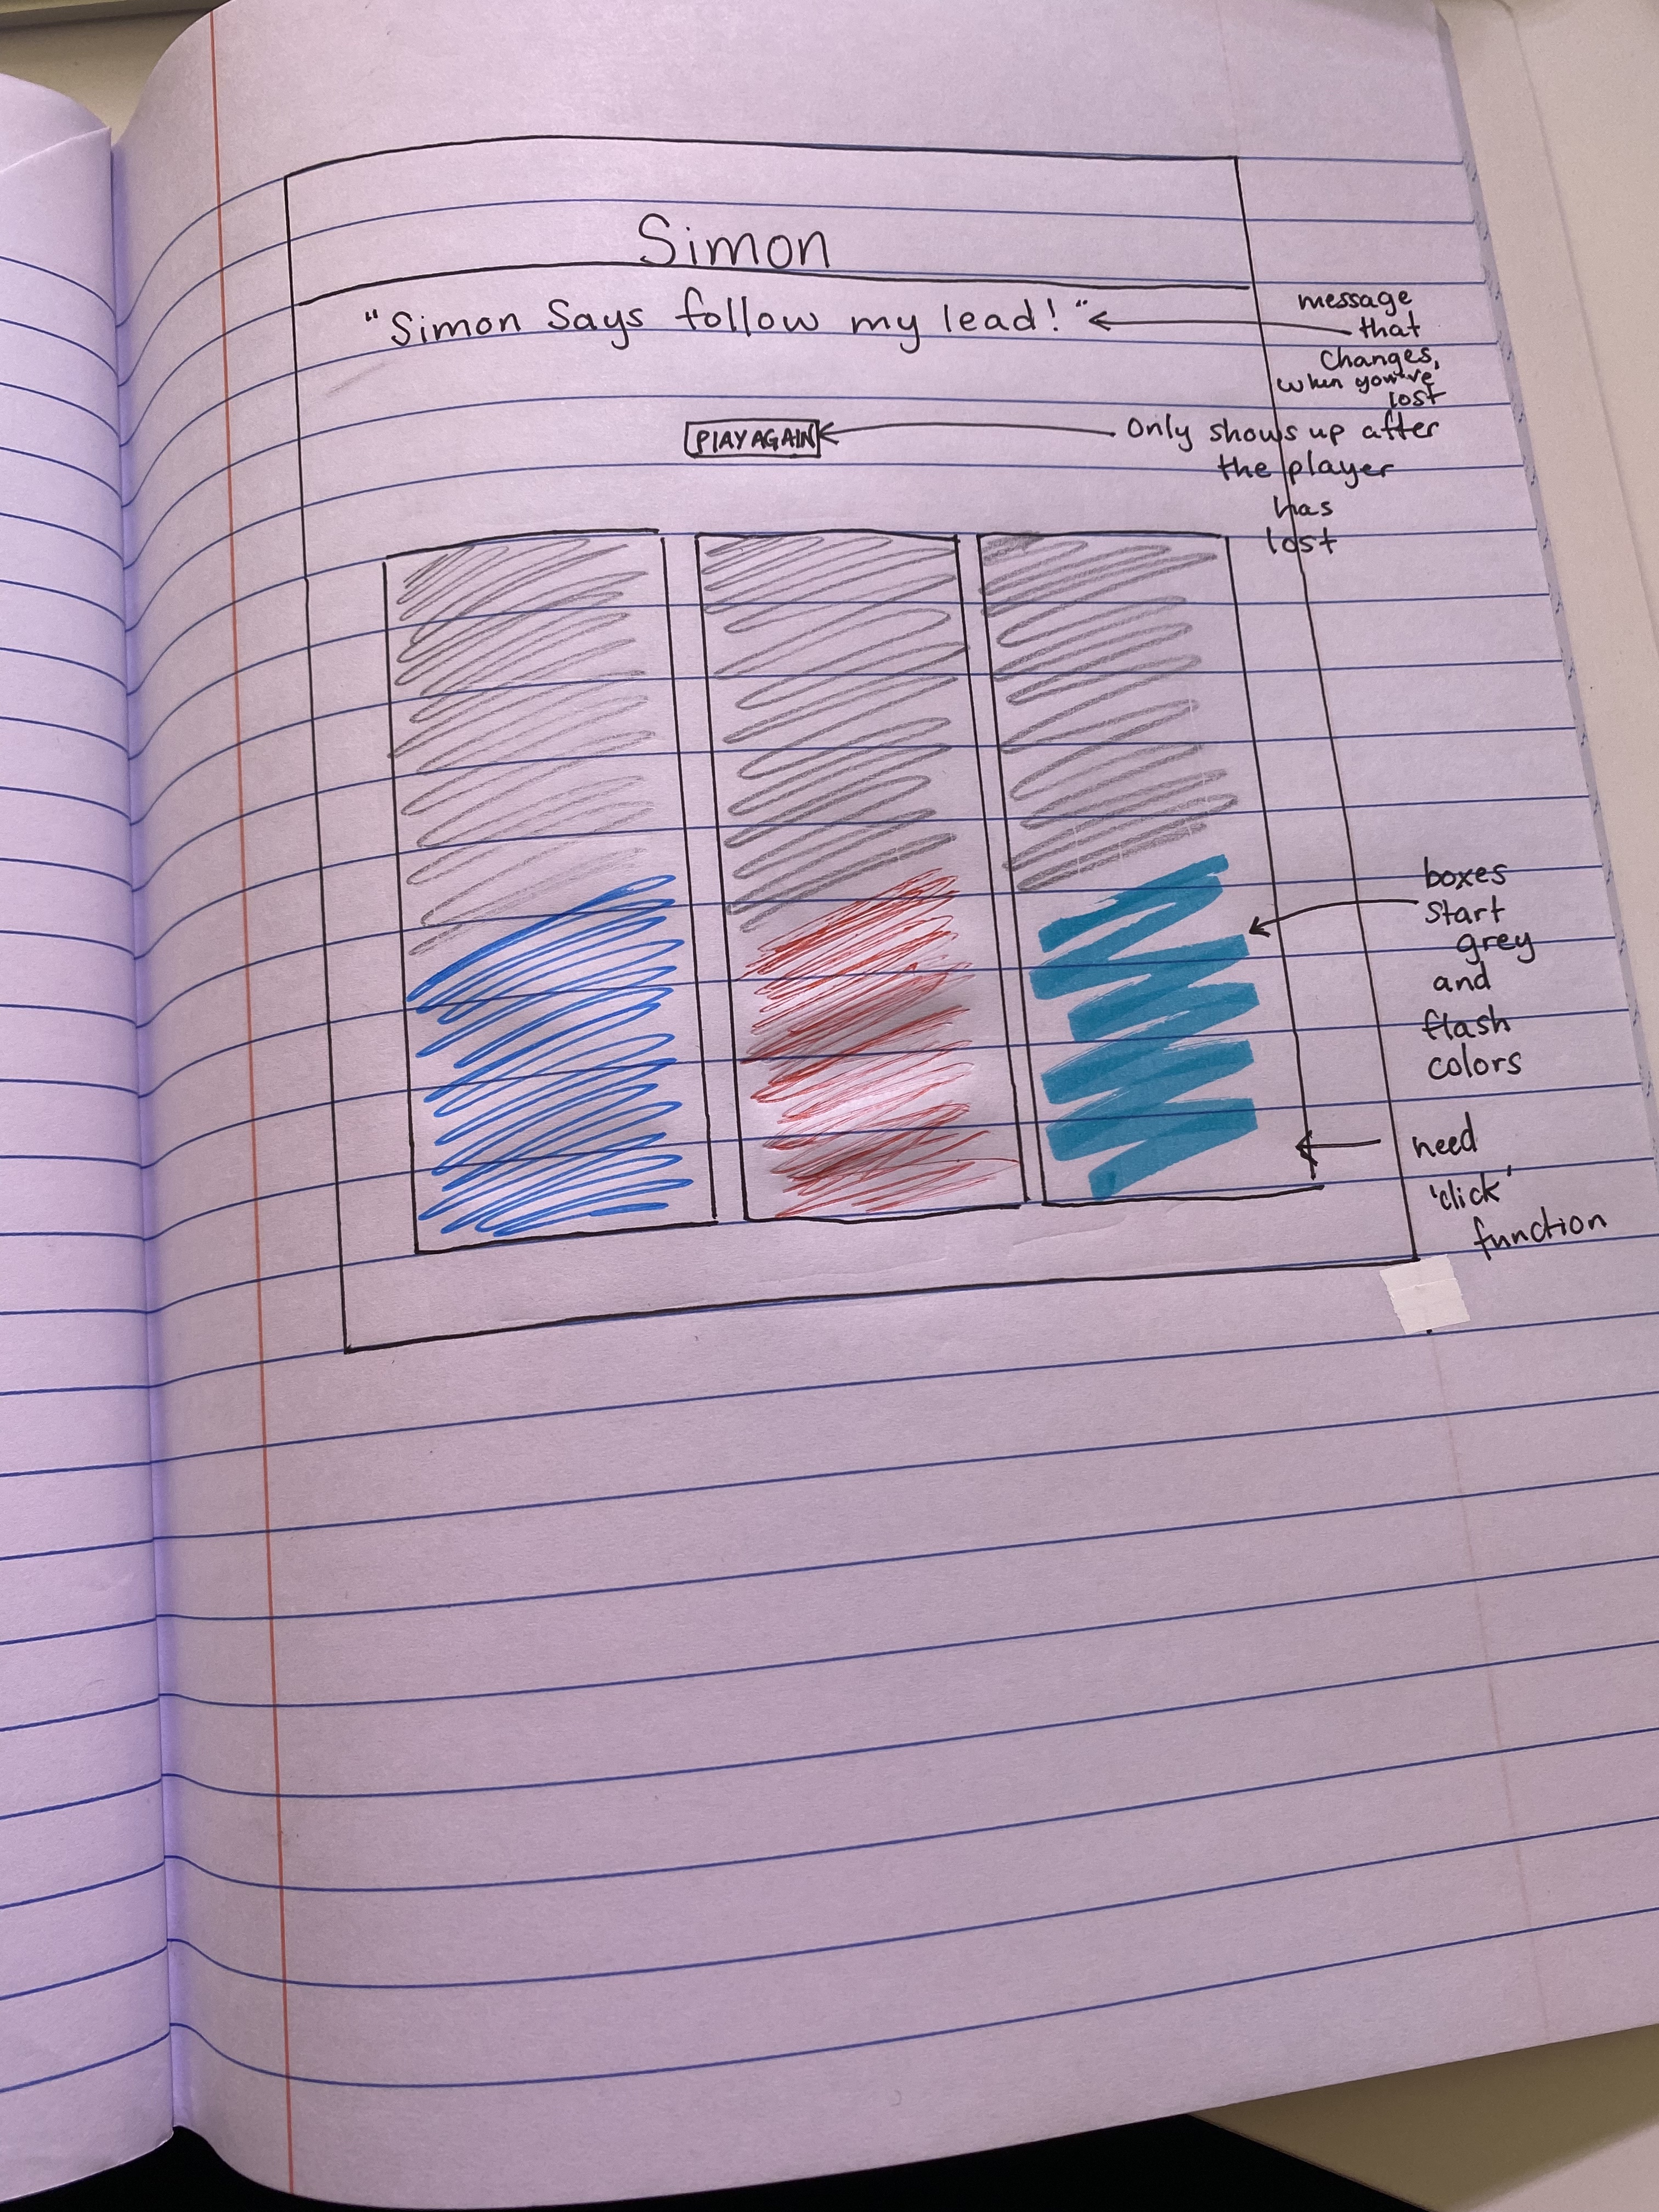 Simon
"Simon Says follow my lead!"
message
that
changes,
when you've
lost
PLAY AGAIN
Only shows up after
the player
has
lost
boxes
start
grey
and
flash
colors
need
'click'
function